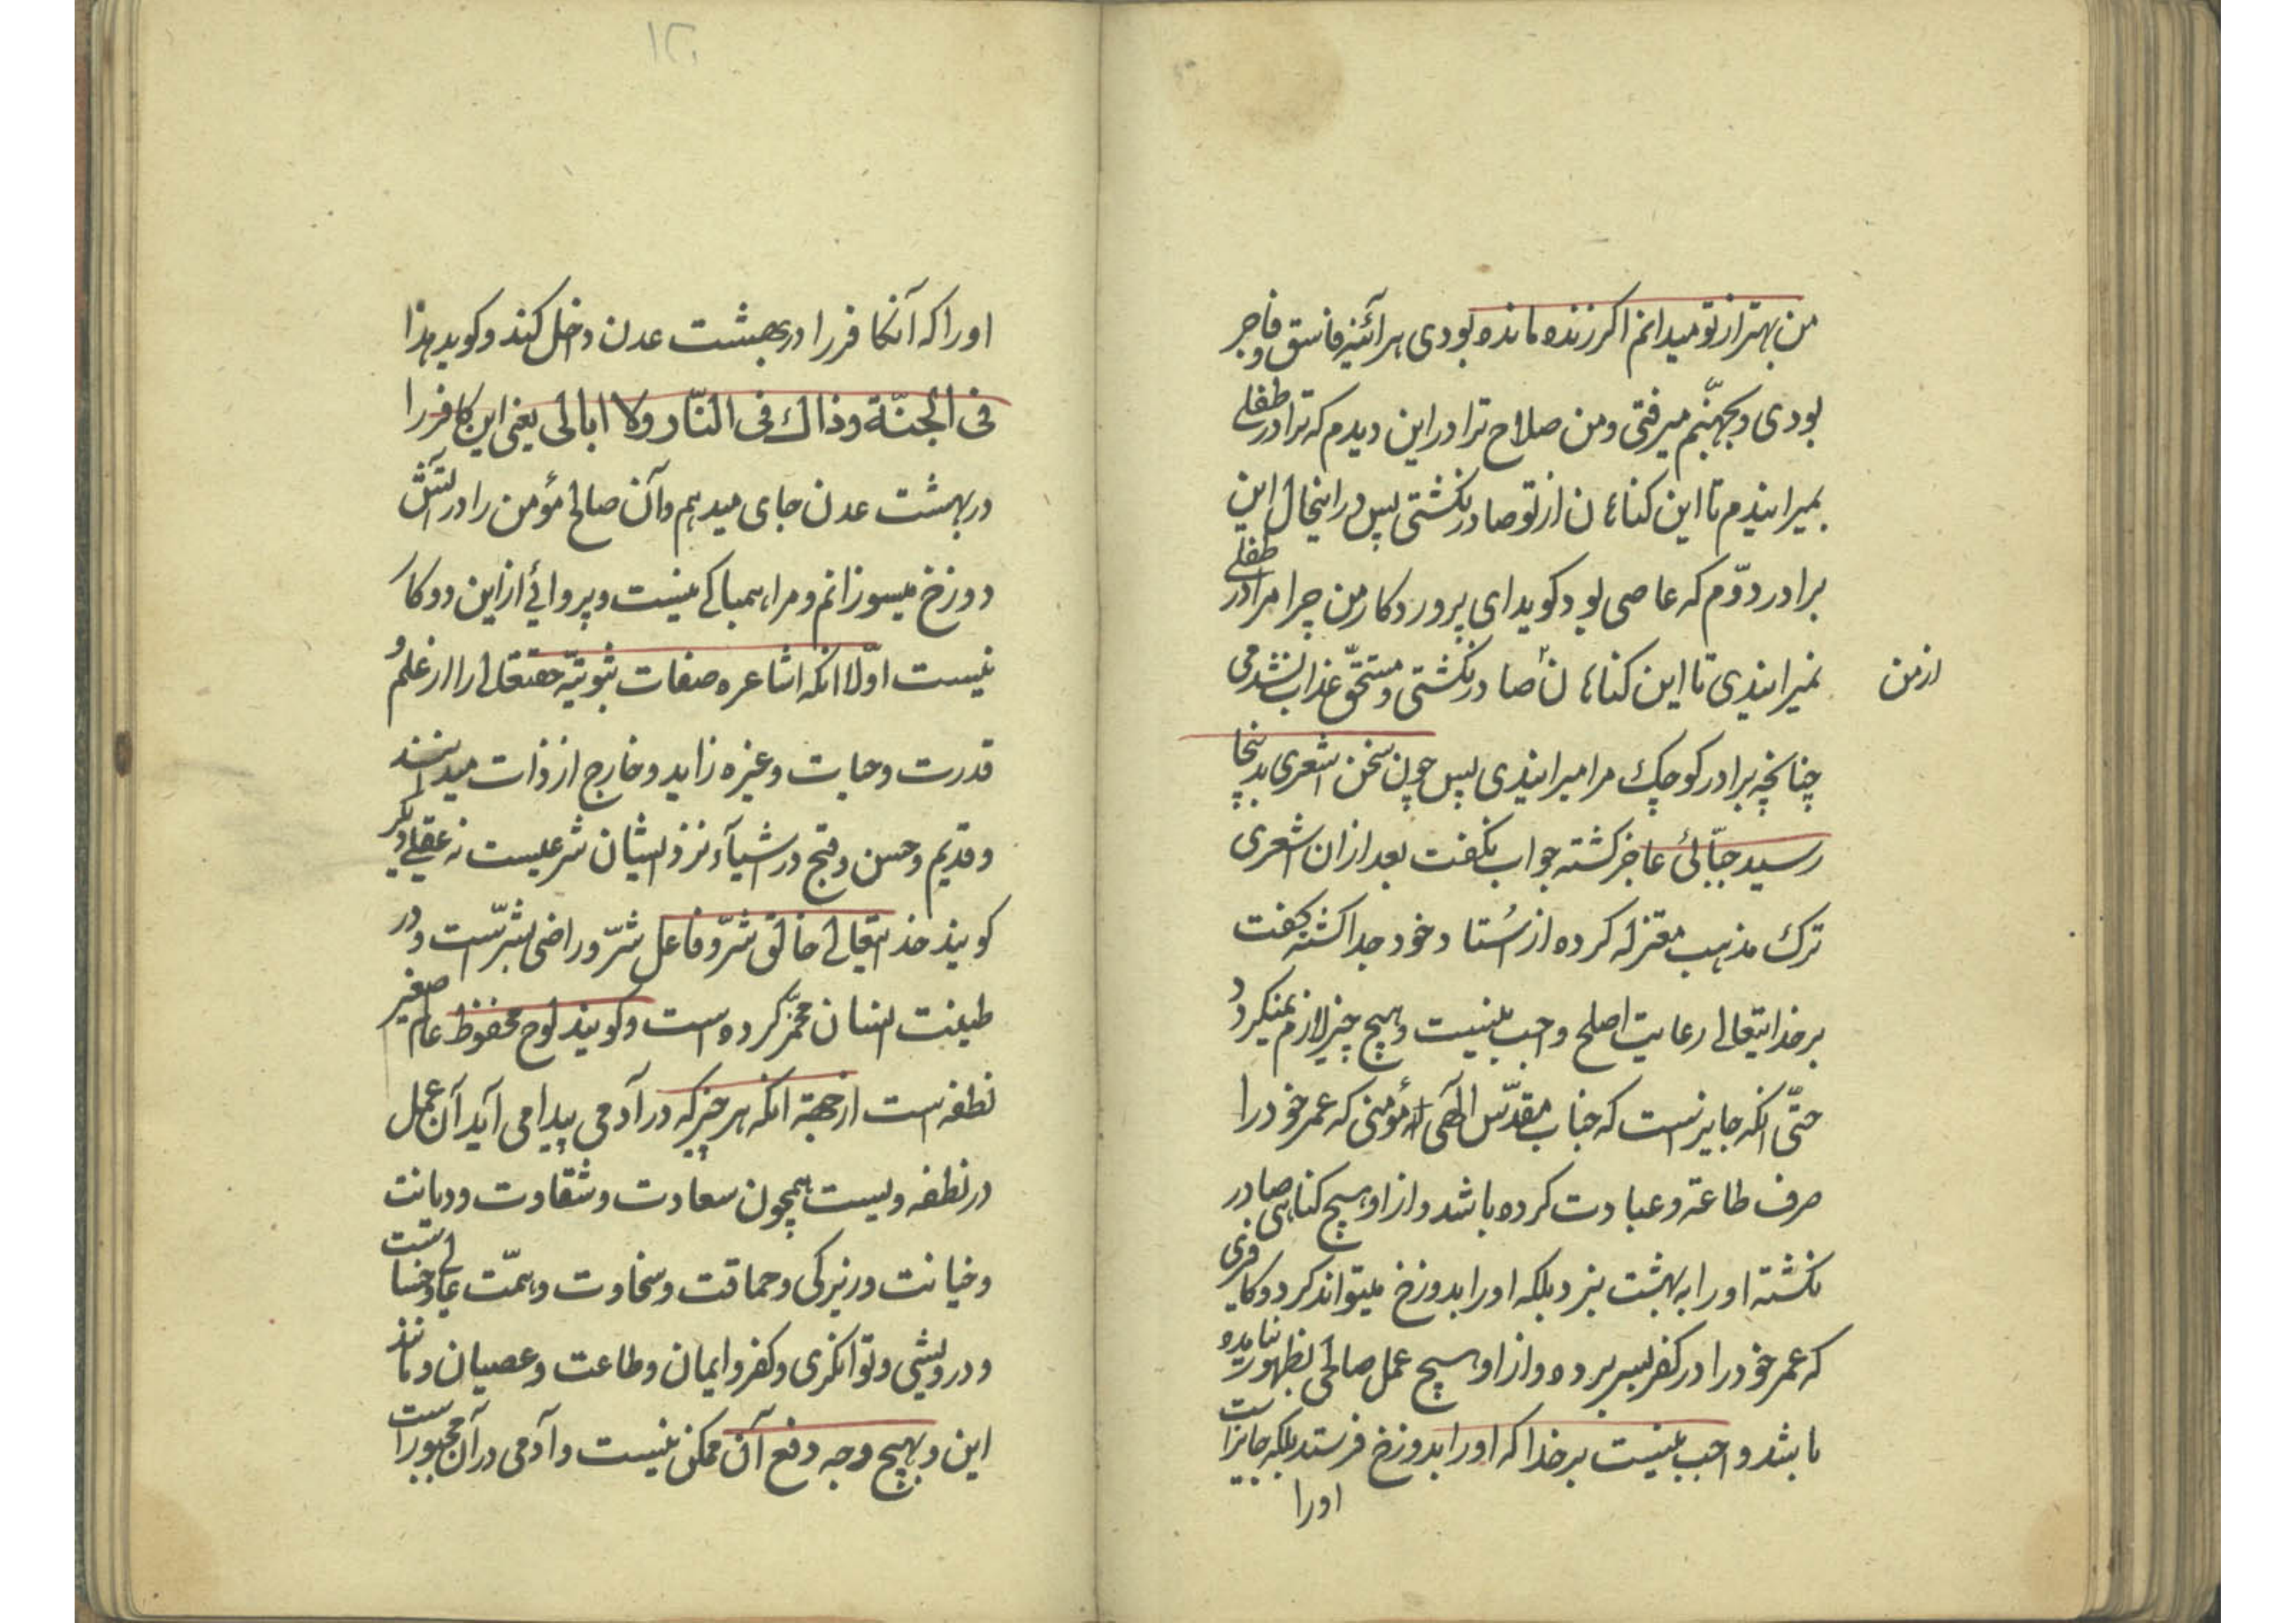 من بهتر از تو میدانم اکر زنده مانده بودی هرآئینه فاسق و فاجر
بودی و بجهنّم میرفتی و من صلاح ترا در این دیدم که ترا در طفلی
بمیرانیدم تا این کناهان از تو صادر نکشتی پس در اینحال این
برادر دوّم که عاصی بود کوید ای پروردکار من چرا مرا در طفلی
نمیرانیدی تا این کناهان صادر نکشتی و مستحقّ عذاب نشدمی
از من
چنانچه برادر کوچک مرا میرانیدی پس چون سخن اشعری بدینجا
رسید جبّائی عاجز کشته جواب نکفت بعد از ان اشعری
ترک مذهب معتزله کرده از اُستاد خود جدا کشته کفت
بر خدایتعالی رعایت اصلح واجب نیست و هیچ چیز لازم نمیکردد
حتّی انکه جایز است که جناب مقدّس الٓهی مؤمنی که عمر خود را
صرف طاعة و عبادت کرده باشد و از او هیچ کناهی صادر
نکشته او را به بهشت نبرد بلکه او را بدوزخ میتواند کرد و کافری
که عمر خود را در کفر بسر برده و از او هیچ عمل صالحی بظهور نیامده
باشد واجب نیست بر خدا که او را بدوزخ فرستد بلکه جایز است
اورا
۱۲۱
او را که آنکافر را در بهشت عدن داخل کند و کوید هذا
فی الجنّة وذاك فی النّار ولا ابالی یعنی این کافر را
در بهشت عدن جای میدهم و آن صالح مؤمن را در آتش
دوزخ میسوزانم و مرا هم باکی نیست و پروائی از این دو کار
نیست اوّلا انکه اشاعره صفات ثبوتیّه حقتعالی را از علم و
قدرت و حیات و غیره زاید و خارج از ذات میدانند
و قدیم و حسن و قبح در اشیآء نزد ایشان شرعیست نه عقلی و دیکر
کویند خدایتعالی خالق شرّ و فاعل شرّ و راضی بشرّست و در
طینت انسان مخمّر کرده است و کویند لوح محفوظ عالم صغیر
نطفه است از جهة انکه هر چیز که در آدمی پیدا می آید آن عمل
در نطفه ویست همچون سعادت و شقاوت و دیانت
و خیانت و زیرکی و حماقت و سخاوت و همّت عالی و خساست
و درویشی و توانکری و کفر و ایمان و طاعت و عصیان و مانند
این و بهیچ وجه دفع آن ممکن نیست و آدمی در آن مجبور است